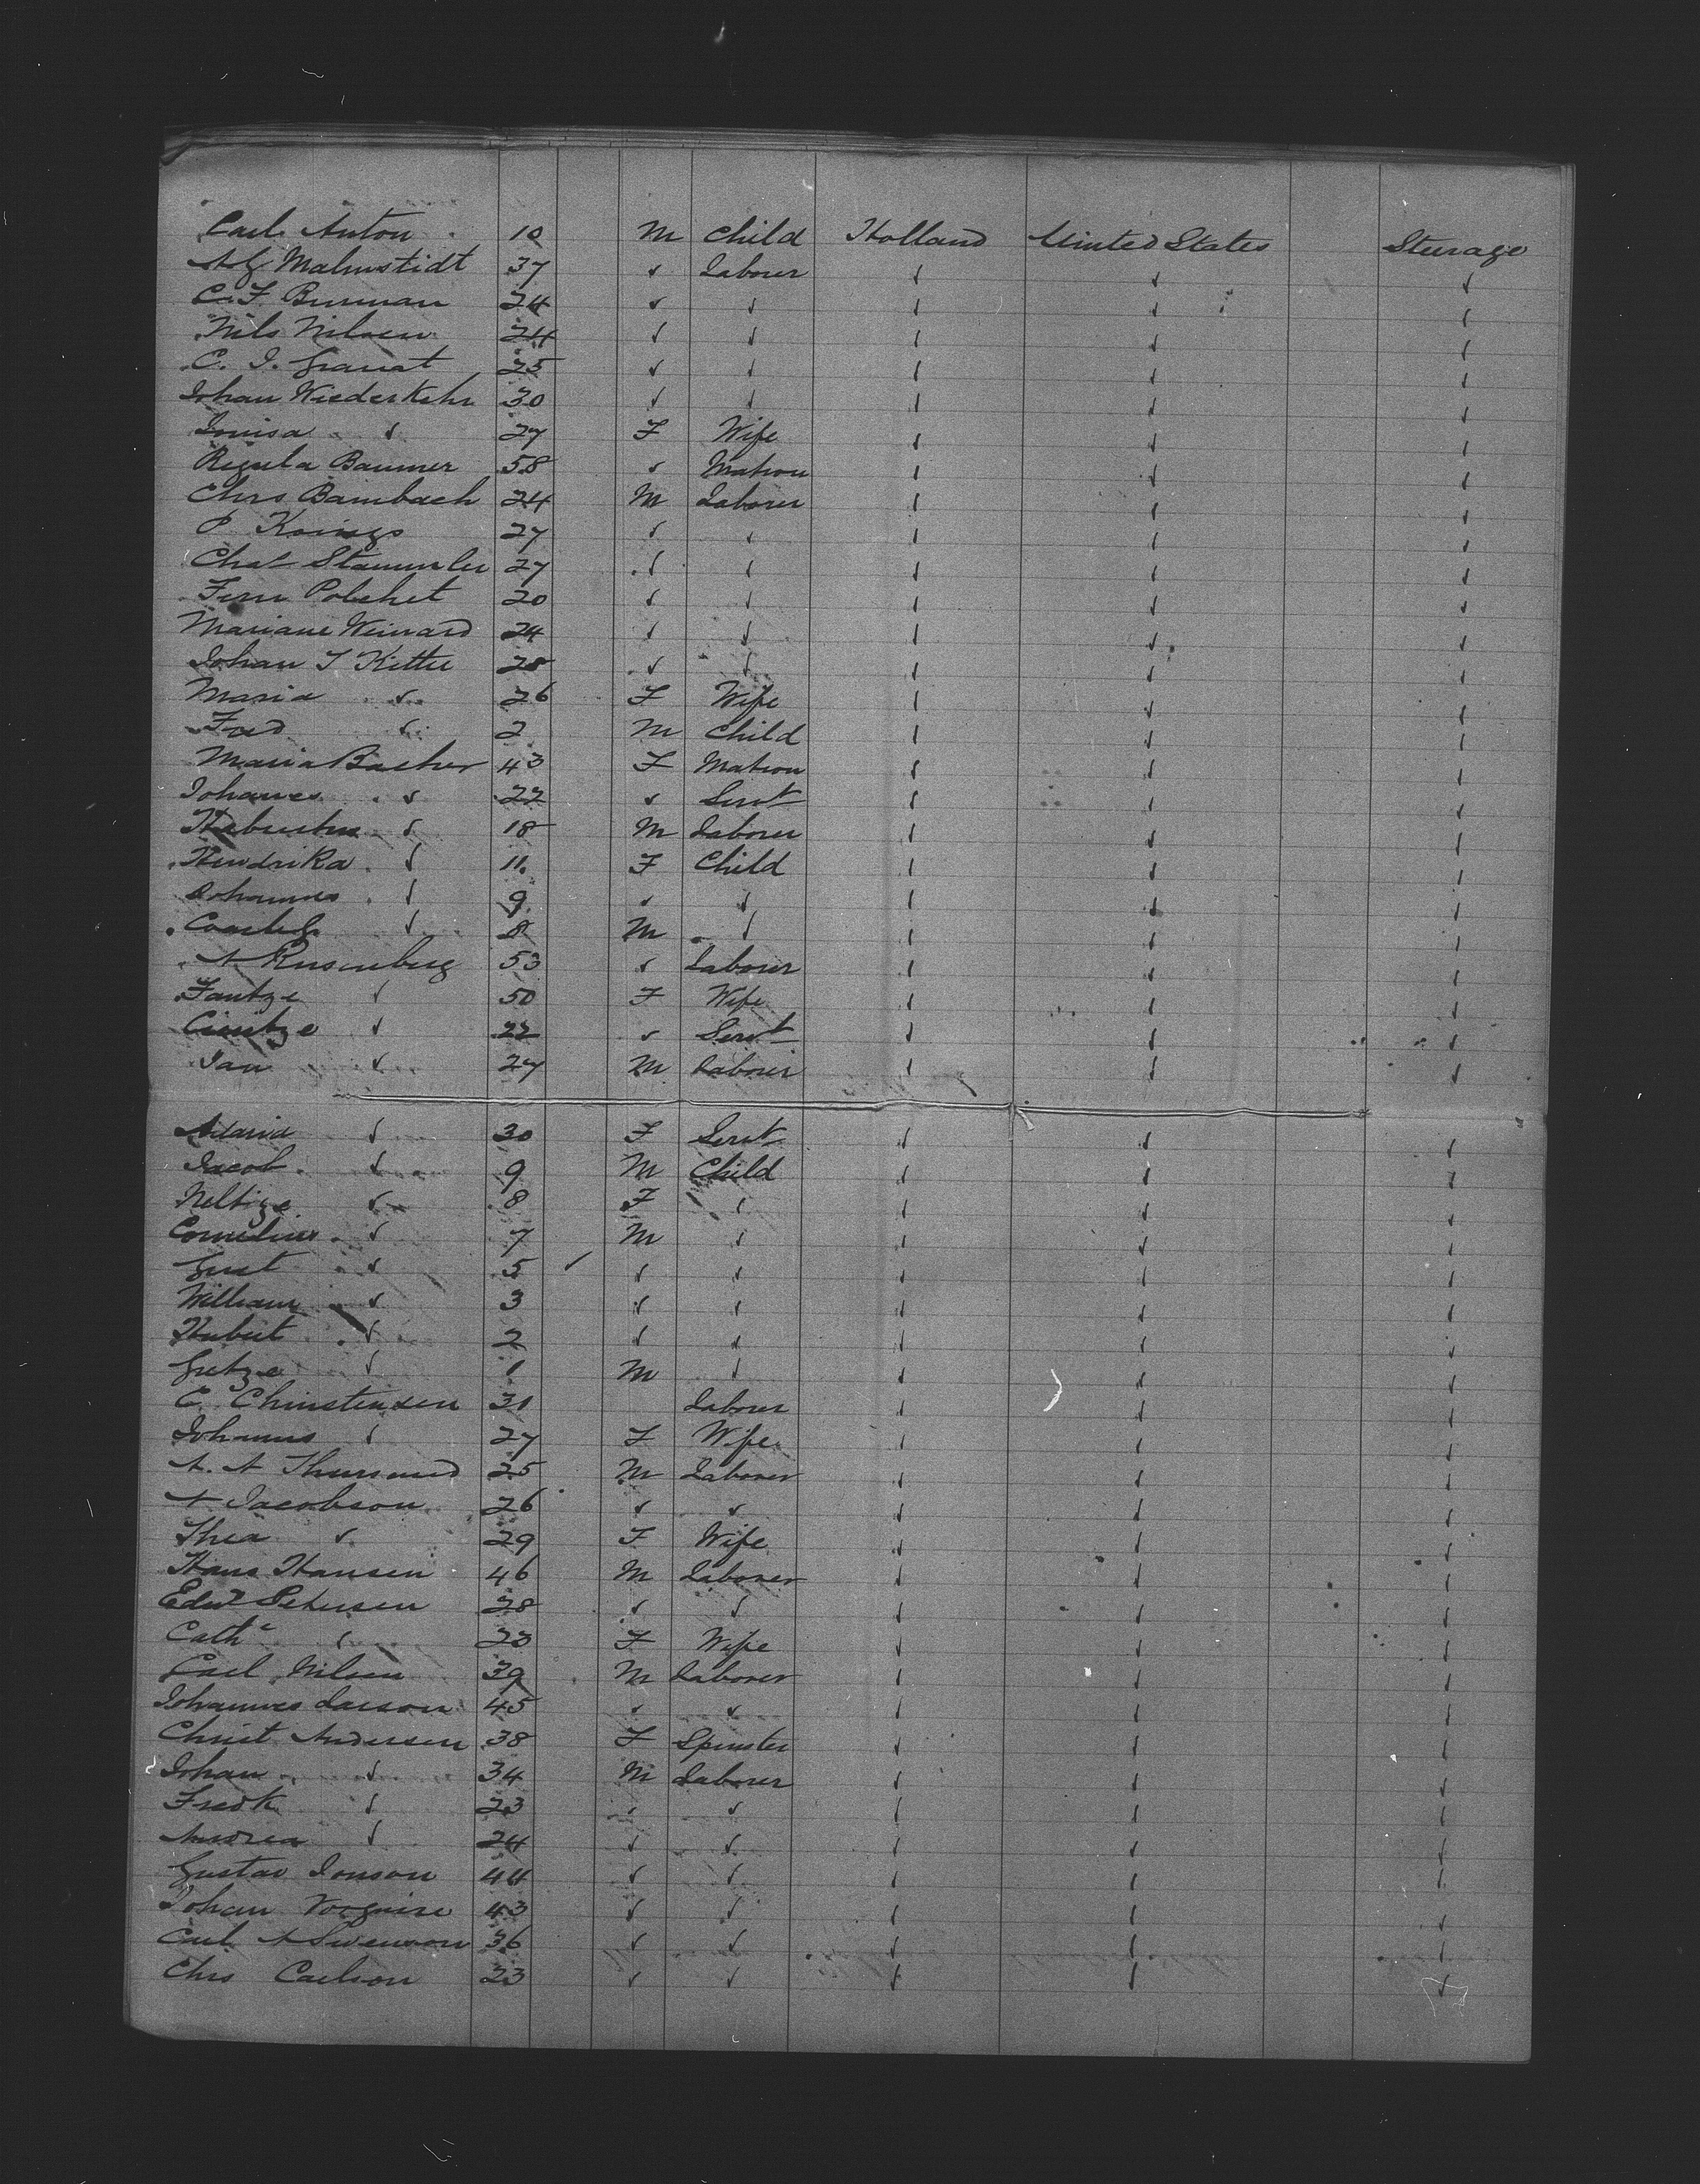 Carl Anton 10 M Child Holland United States Steerage
A G Malmstidt 37 ✓ Laborer ✓ ✓ ✓
C. F. Burman 24 ✓ ✓ ✓ ✓ ✓
Nils Nilsen 24 ✓ ✓ ✓ ✓ ✓
C. J. Granat 25 ✓ ✓ ✓ ✓ ✓
Johan Wiederkehr 30 ✓ ✓ ✓ ✓ ✓
Louisa ✓ 27 F Wife ✓ ✓ ✓
Regula Baumer 58 ✓ Matron ✓ ✓ ✓
Chrs Bambach 24 M Laborer ✓ ✓ ✓
P Konigs 27 ✓ ✓ ✓ ✓ ✓
Chas Stammler 27 ✓ ✓ ✓ ✓ ✓
Polchet 20 ✓ ✓ ✓ ✓ ✓
Mariane Weinard 24 ✓ ✓ ✓ ✓ ✓
Johan T Kitte 28 ✓ ✓ ✓ ✓ ✓
Maria ✓ 26 F Wife ✓ ✓ ✓
Fred ✓ 2 M Child ✓ ✓ ✓
Maria Bacher 43 F Matron ✓ ✓ ✓
Johannes ✓ 22 ✓ Servt ✓ ✓ ✓
✓ 18 M Laborer ✓ ✓ ✓
Hendrika ✓ 11 F Child ✓ ✓ ✓
Johannes ✓ 9 ✓ ✓ ✓ ✓ ✓
✓ 8 M ✓ ✓ ✓ ✓
A Rusenberg 53 ✓ Laborer ✓ ✓ ✓
Fantze ✓ 50 F Wife ✓ ✓ ✓
✓ 22 ✓ Servt ✓ ✓ ✓
Jan ✓ 27 M Laborer ✓ ✓ ✓
✓ 30 F Servt ✓ ✓ ✓
Jacob ✓ 9 M Child ✓ ✓ ✓
Neltize ✓ 8 F ✓ ✓ ✓ ✓
Cornelius ✓ 7 M ✓ ✓ ✓ ✓
✓ 5 ✓ ✓ ✓ ✓ ✓ ✓
William ✓ 3 ✓ ✓ ✓ ✓ ✓
Hubert ✓ 2 ✓ ✓ ✓ ✓ ✓
Getze ✓ 1 M ✓ ✓ ✓ ✓
E. Christensen 31 Laborer ✓ ✓ ✓
Johannes ✓ 27 F Wife ✓ ✓ ✓
A. A 25 M Laborer ✓ ✓ ✓
A Jacobson 26 ✓ ✓ ✓ ✓ ✓
Thea ✓ 29 F Wife ✓ ✓ ✓
Hans Hansen 46 M Laborer ✓ ✓ ✓
Edwd Petersen 28 ✓ ✓ ✓ ✓ ✓
Cathe ✓ 23 F Wife ✓ ✓ ✓
Carl Nilsen 39 M Laborer ✓ ✓ ✓
Johannes Larson 45 ✓ ✓ ✓ ✓ ✓
Christ Andersen 38 F Spinster ✓ ✓ ✓
Johan ✓ 34 M Laborer ✓ ✓ ✓
Fredk ✓ 23 ✓ ✓ ✓ ✓ ✓
Andrea ✓ 24 ✓ ✓ ✓ ✓ ✓
Gustav Jonson 44 ✓ ✓ ✓ ✓ ✓
Johan 43 ✓ ✓ ✓ ✓ ✓
Carl A Swenson 36 ✓ ✓ ✓ ✓ ✓
Chrs Carlson 23 ✓ ✓ ✓ ✓ ✓